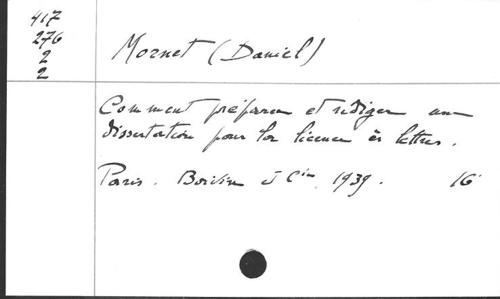 417
276
2
2
Mornet (Daniel)
Comment préparer et rédiger une
dissertation pour la licence ès lettres.
Paris. Boivin & Cie, 1939. 16°